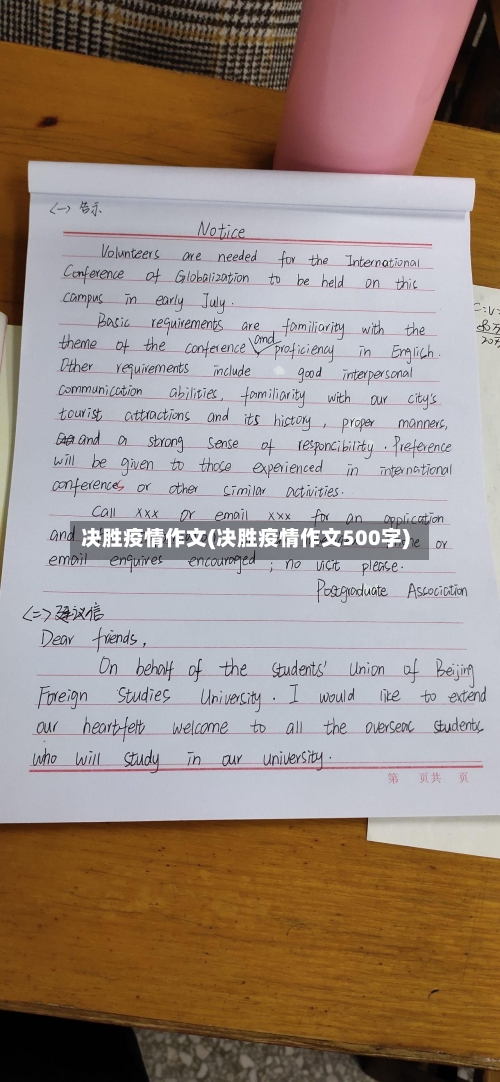 <一> 告示
Notice
Volunteers are needed for the International
Conference of Globalization to be held on this
campus in early July.
Basic requirements are familiarity with the
theme of the conference and proficiency in English.
Other requirements include good interpersonal
communication abilities, familiarity with our city's
tourist attractions and its history, proper manners,
and a strong sense of responcibility. Preference
will be given to those experienced in international
conferences or other similar activities.
Call xxx or email xxx for an application
and
决胜疫情作文(决胜疫情作文500字)
or
email enquires encouraged; no visit please.
Postgraduate Association
<二> 建议信
Dear friends,
On behalf of the students' Union of Beijing
Foreign Studies University. I would like to extend
our heartfelt welcome to all the overseas students
who will study in our university.
第 页共 页